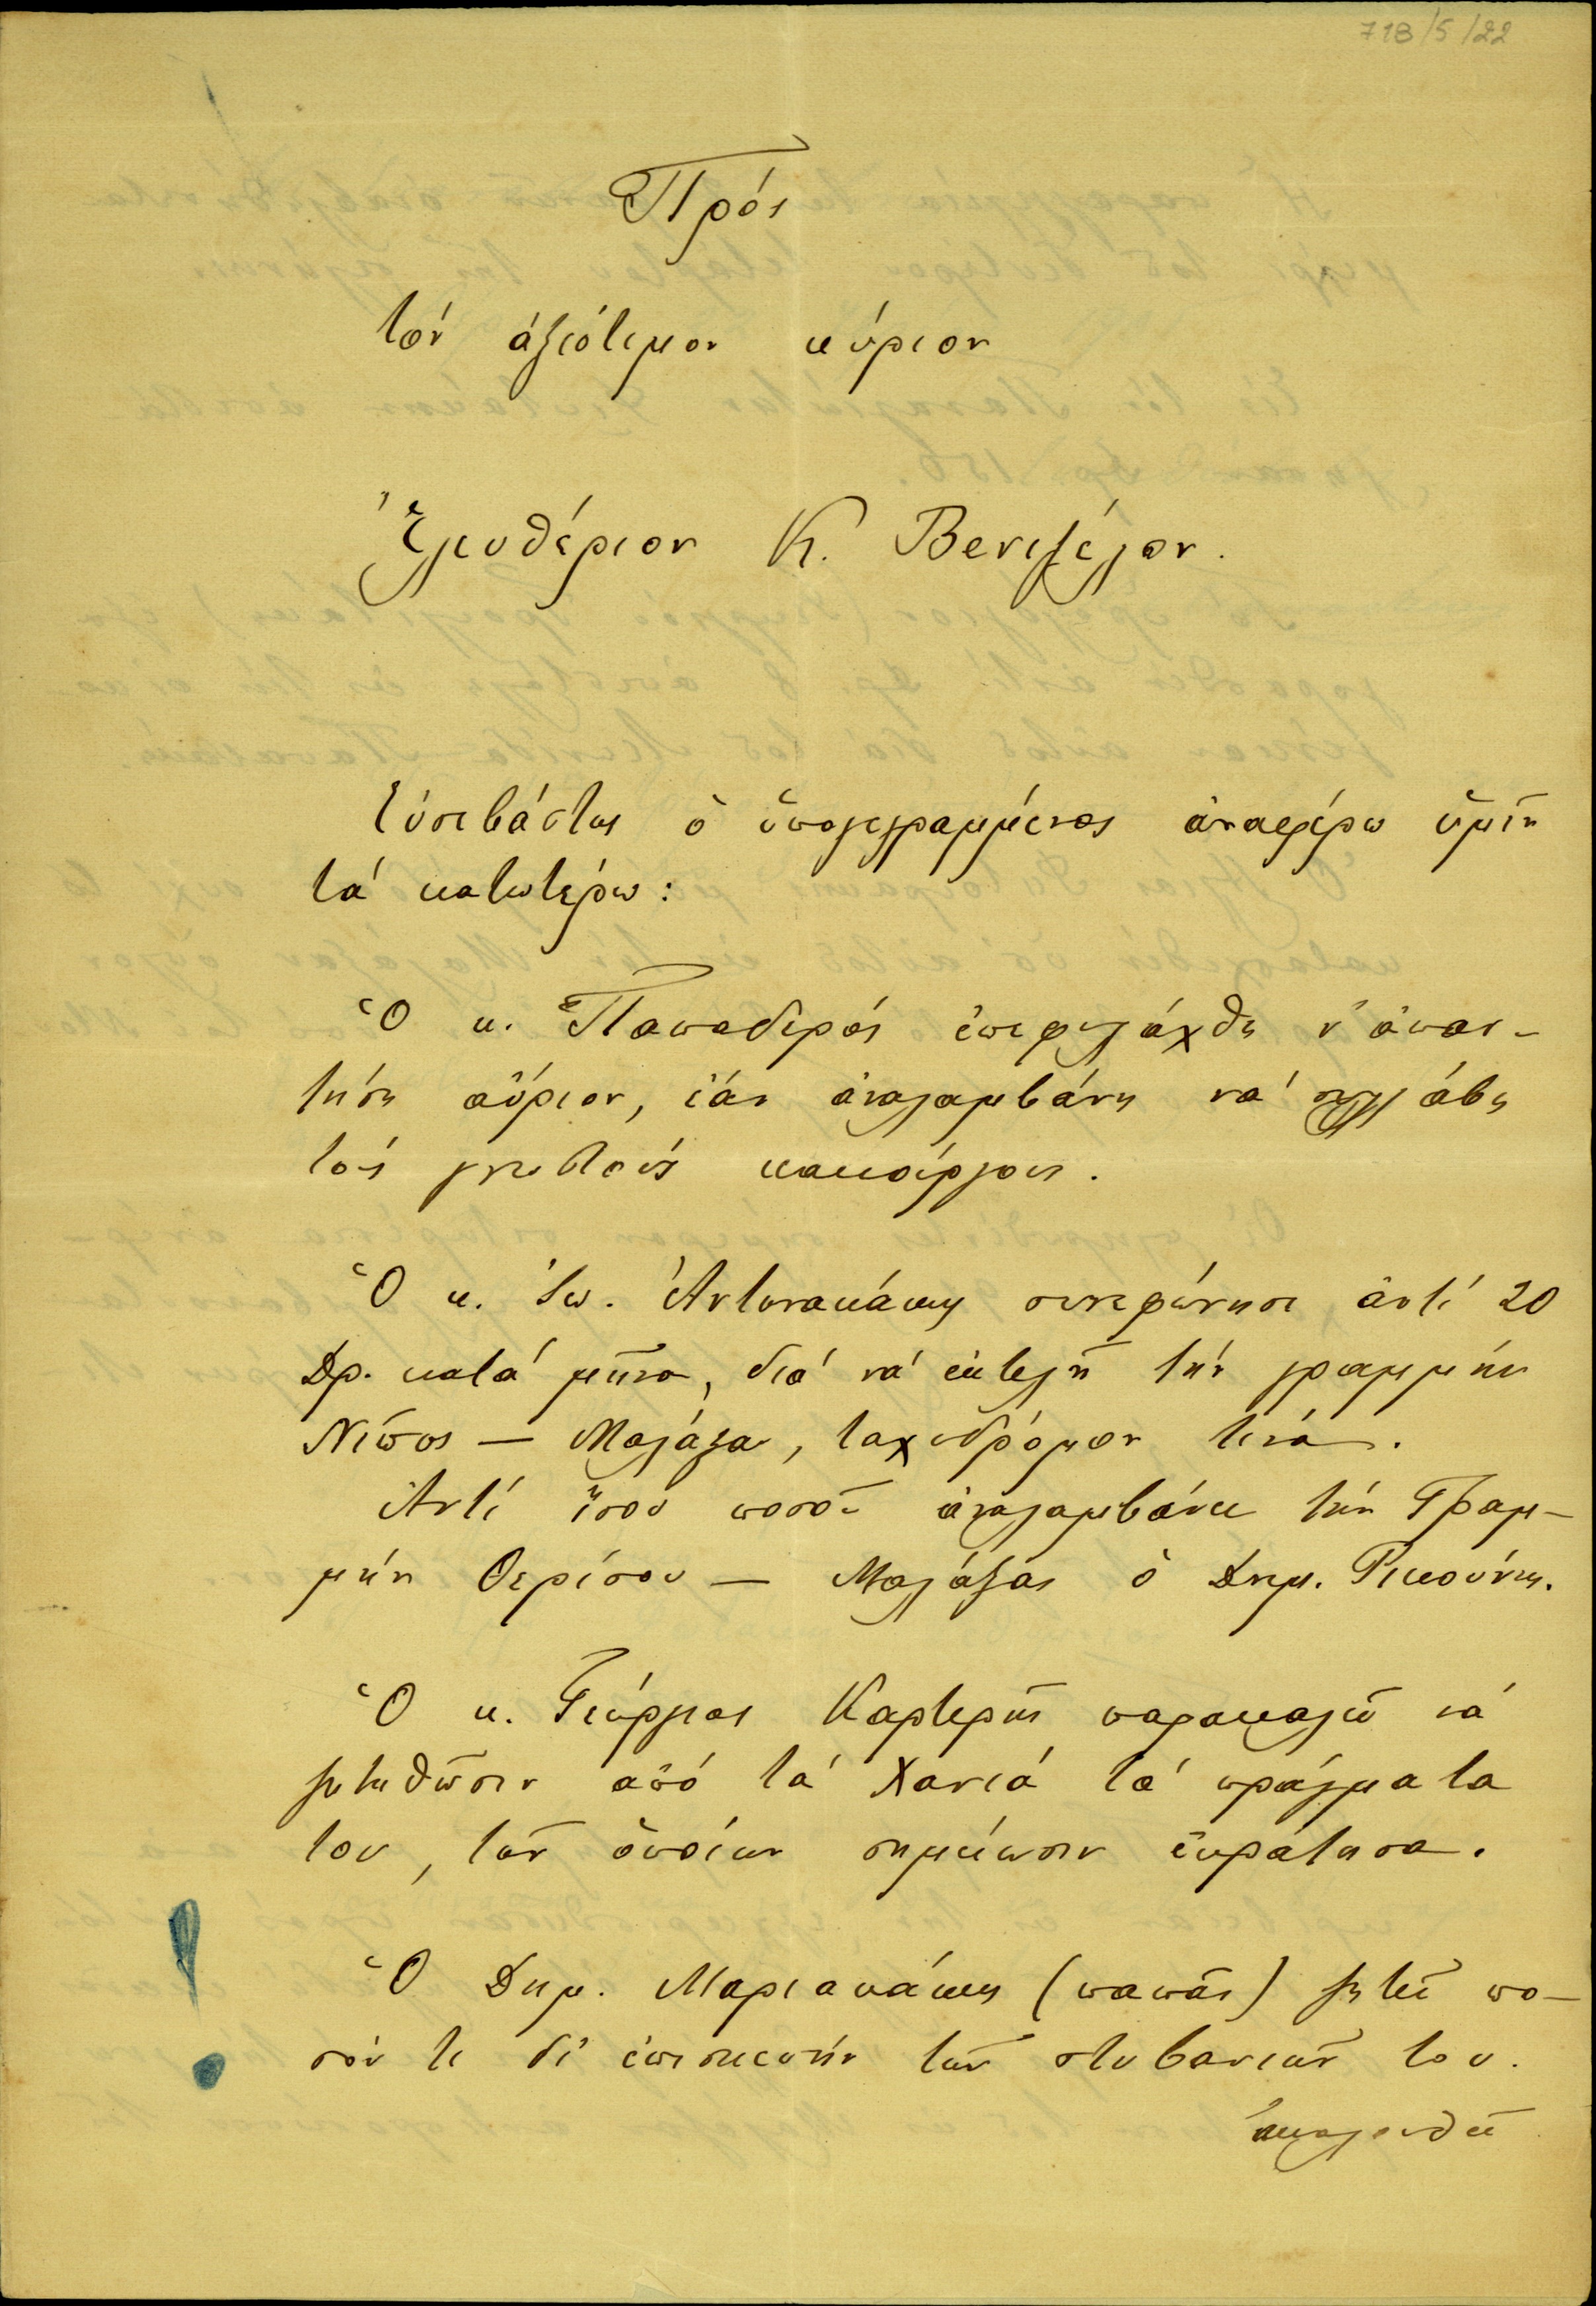 718/5/22
Πρός
τόν ἀξιότιμον κύριον
Ἐλευθέριον Κ. Βενιζέλον.
Εὐσεβάστως ὁ ὑπογεγραμμένος ἀναφέρω ὑμῖν
τά κατωτέρω:
Ὁ κ. Παπαδερός ἐπεφυλάχθη ν' ἀπαν-
τήσῃ αὔριον, ἐάν ἀναλαμβάνῃ νά συλλάβῃ
τούς γνωστούς κακούργους.
Ὁ κ. Ἰω. Ἀντωνακάκης συνεφώνησε ἀντί 20
Δρ. κατά μῆνα, διά νά ἐκτελῇ τήν γραμμήν
Νίππος — Μαλάξα, ταχυδρόμον τινά.
Ἀντί ἴσου ποσοῦ ἀναλαμβάνει τήν Γραμ-
μήν Θερίσου — Μαλάξας ὁ Δημ. Ρικούνης.
Ὁ κ. Γεώργιος Καρτερῆς παρακαλεῖ νά
ζητηθῶσιν ἀπό τά Χανιά τά πράγματα
του, τῶν ὁποίων σημείωσιν ἐκράτησα.
Ὁ Δημ. Μαριακάκης (παπᾶς) ζητεῖ πο-
σόν τι δι' ἐπισκευήν τῶν στυβανιῶν του.
ἀκολουθεῖ